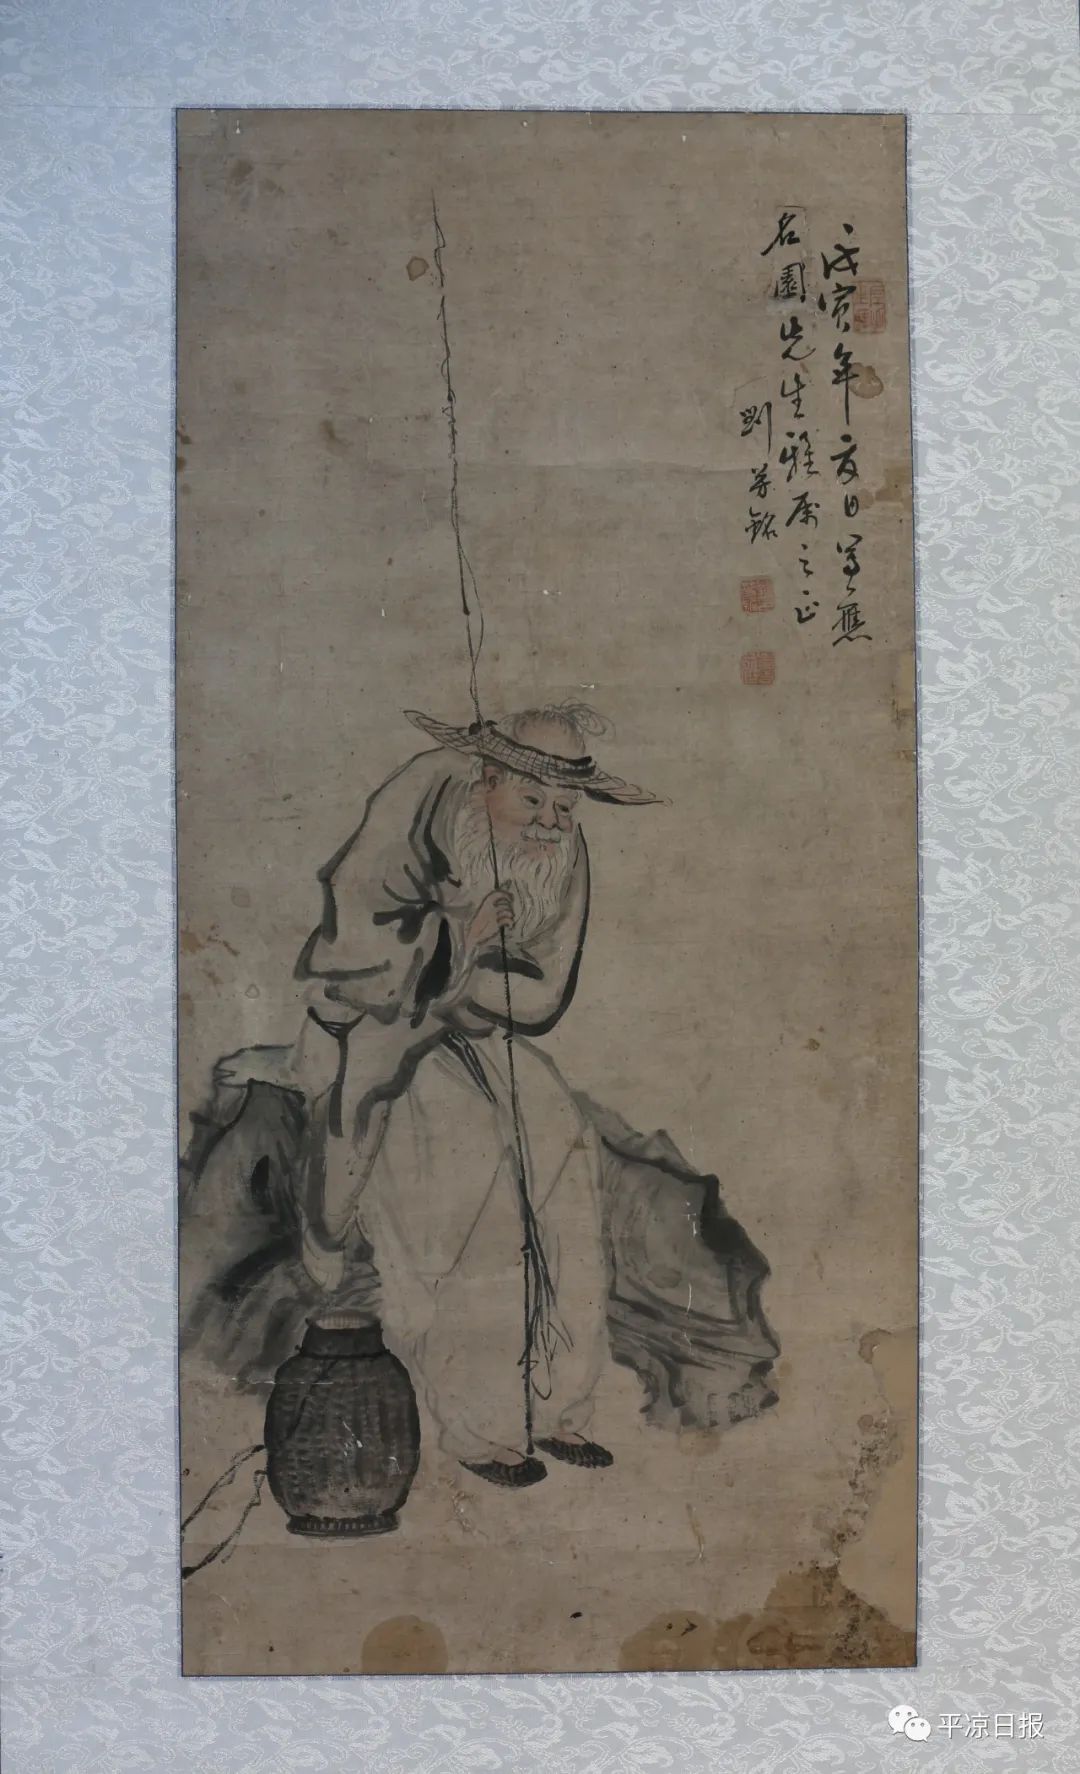 戊寅年夏日写应
名園先生雅属之正
劉
銘
平凉日报